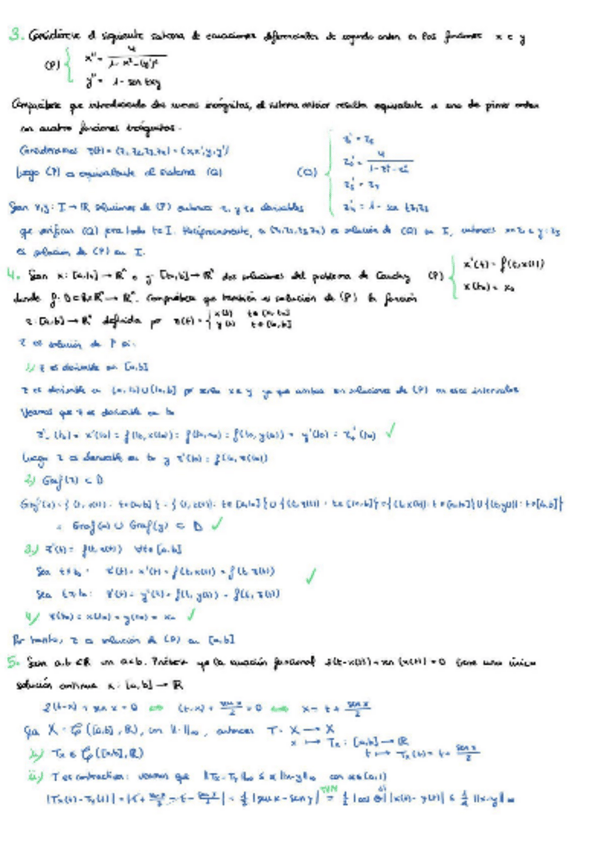 3. Considérese el siguiente sistema de ecuaciones diferenciales de segundo orden en las funciones x e y
(P) { x'' = 4 / (1 - x² - (y')²)
y'' = 1 - sen txy
Compruébese que introduciendo dos nuevas incógnitas, el sistema anterior resulta equivalente a uno de primer orden
en cuatro funciones incógnitas.
Consideramos z(t) = (z₁, z₂, z₃, z₄) = (x, x', y, y')
Luego (P) es equivalente al sistema (Q)
(Q) { z₁' = z₂
z₃' = z₄
Sean x, y: I → ℝ soluciones de (P) entonces
que verifican (Q) para todo t ∈ I. Recíprocamente, si (z₁, z₂, z₃, z₄) es solución de (Q) en I, entonces x = z₁ e y = z₃
es solución de (P) en I.
4. Sean x: [a, t₀] → ℝⁿ e y: [t₀, b] → ℝⁿ dos soluciones del problema de Cauchy (P) { x'(t) = f(t, x(t))
x(t₀) = x₀
donde f: D ⊂ ℝ×ℝⁿ → ℝⁿ. Compruébese que también es solución de (P) la función
z: [a, b] → ℝⁿ definida por z(t) = { x(t) t ∈ [a, t₀]
y(t) t ∈ [t₀, b]
z es solución de P si:
1) z es derivable en [a, b]
z es derivable en [a, t₀) ∪ (t₀, b] por serlo x e y ya que ambas son soluciones de (P) en esos intervalos
Veamos que z es derivable en t₀
z'₋(t₀) = x'(t₀) = f(t₀, x(t₀)) = f(t₀, x₀) = f(t₀, y(t₀)) = y'(t₀) = z'₊(t₀) ✓
Luego z es derivable en t₀ y z'(t₀) = f(t₀, z(t₀))
2) Graf(z) ⊂ D
Graf(z) = {(t, z(t)) : t ∈ [a, b]} = {(t, z(t)) : t ∈ [a, t₀]} ∪ {(t, z(t)) : t ∈ [t₀, b]} = {(t, x(t)) : t ∈ [a, t₀]} ∪ {(t, y(t)) : t ∈ [t₀, b]}
= Graf(x) ∪ Graf(y) ⊂ D ✓
3) z'(t) = f(t, z(t)) ∀t ∈ [a, b]
Sea t ≤ t₀ : z'(t) = x'(t) = f(t, x(t)) = f(t, z(t))
Sea t ≥ t₀ : z'(t) = y'(t) = f(t, y(t)) = f(t, z(t)) ✓
4) z(t₀) = x(t₀) = y(t₀) = x₀ ✓
Por tanto, z es solución de (P) en [a, b]
5. Sean a, b ∈ ℝ con a < b. Pruébese que la ecuación funcional 2(t - x(t)) + sen(x(t)) = 0 tiene una única
solución continua x: [a, b] → ℝ
2(t - x) + sen x = 0 ⟺ (t - x) + sen x / 2 = 0 ⟺ x = t + sen x / 2
Sea X = 𝒞([a, b], ℝ), con ‖·‖∞, entonces T: X → X
x ↦ Tx : [a, b] → ℝ
t ↦ Tx(t) = t + sen x / 2
i) Tx ∈ 𝒞([a, b], ℝ)
ii) T es contractiva: veamos que ‖Tx - Ty‖∞ ≤ α ‖x - y‖∞ con α ∈ (0, 1)
|Tx(t) - Ty(t)| = |t + sen x / 2 - t - sen y / 2| = 1/2 |sen x - sen y| = 1/2 |cos θ| |x(t) - y(t)| ≤ 1/2 ‖x - y‖∞